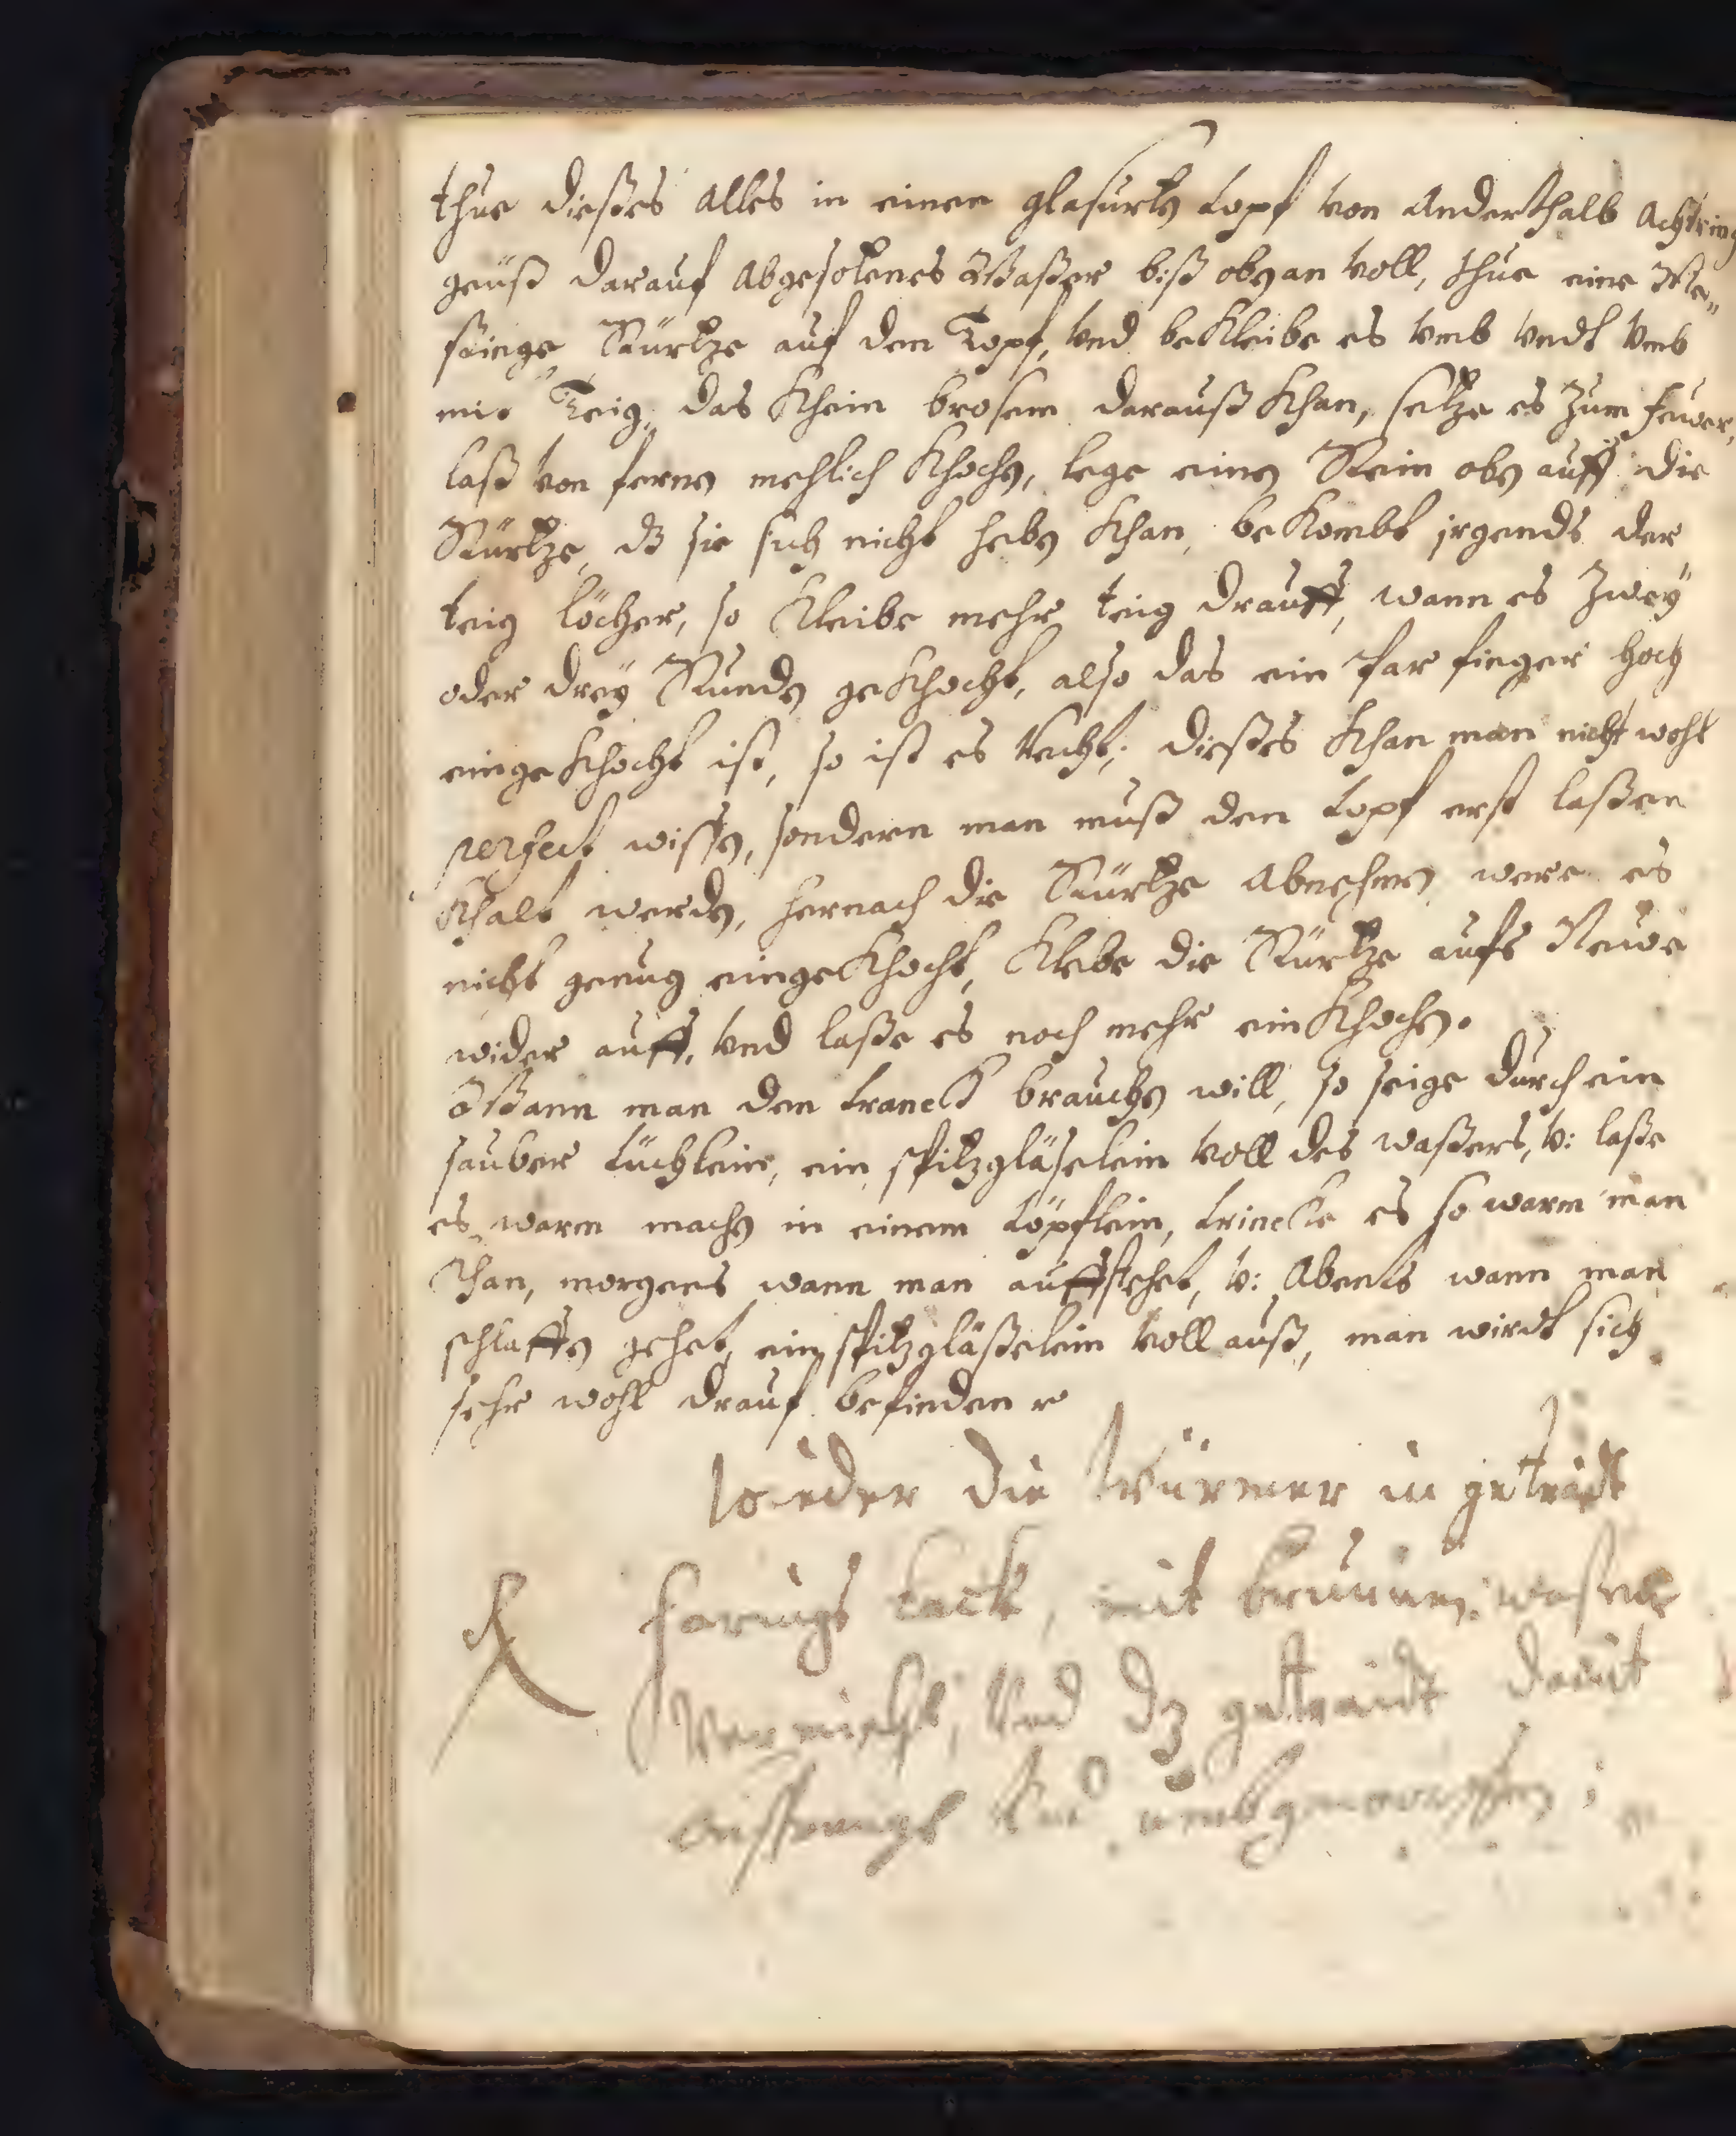 thue dießes alles in einen glasurten topf von anderthalb achtring
geuß darauf abgesotenes Waßer biß oben an voll, thue eine Me„
ßinge Stürtze auf den Topf, vnd bekleibe es vmb vndt vmb
mit Teig, das khein brosem darauß khan, setze es zum feuer,
laß von fernen mehlich khochen, lege einen Stein oben auff die
Stürtze, dz sie sich nicht heben khan, bekombt jrgends der
teig löcher, so kleibe mehr teig drauff, wann es zwey
oder drey Stunden gekhocht, also das ein par finger hoch
eingekhocht ist, so ist es recht; dießes khan man nicht wohl
perfect wissen, sondern man muß den topf erst laßen
khalt werden, hernach die Stürtze abnehmen, were es
nicht genug eingekhocht, klebe die Stürtze aufs Neue
wider auff, vnd laße es noch mehr einkhochen.
Wann man den tranck brauchen will, so seige durch ein
sauber tüchlein, ein spitzgläselein voll des waßers, v: laße
es warm machen in einem töpflein, trincke es so warm man
khan, morgens wann man auffstehet, v: Abents wann man
schlaffen gehet, ein spitzgläßelein voll auß, man wirdt sich
sehr wohl drauf befinden
wieder die Würmer in getraidt
Harings lack, mit brunnen waser
vermischt, vnd dz getraidt damit
vnd vmbgeworffen;